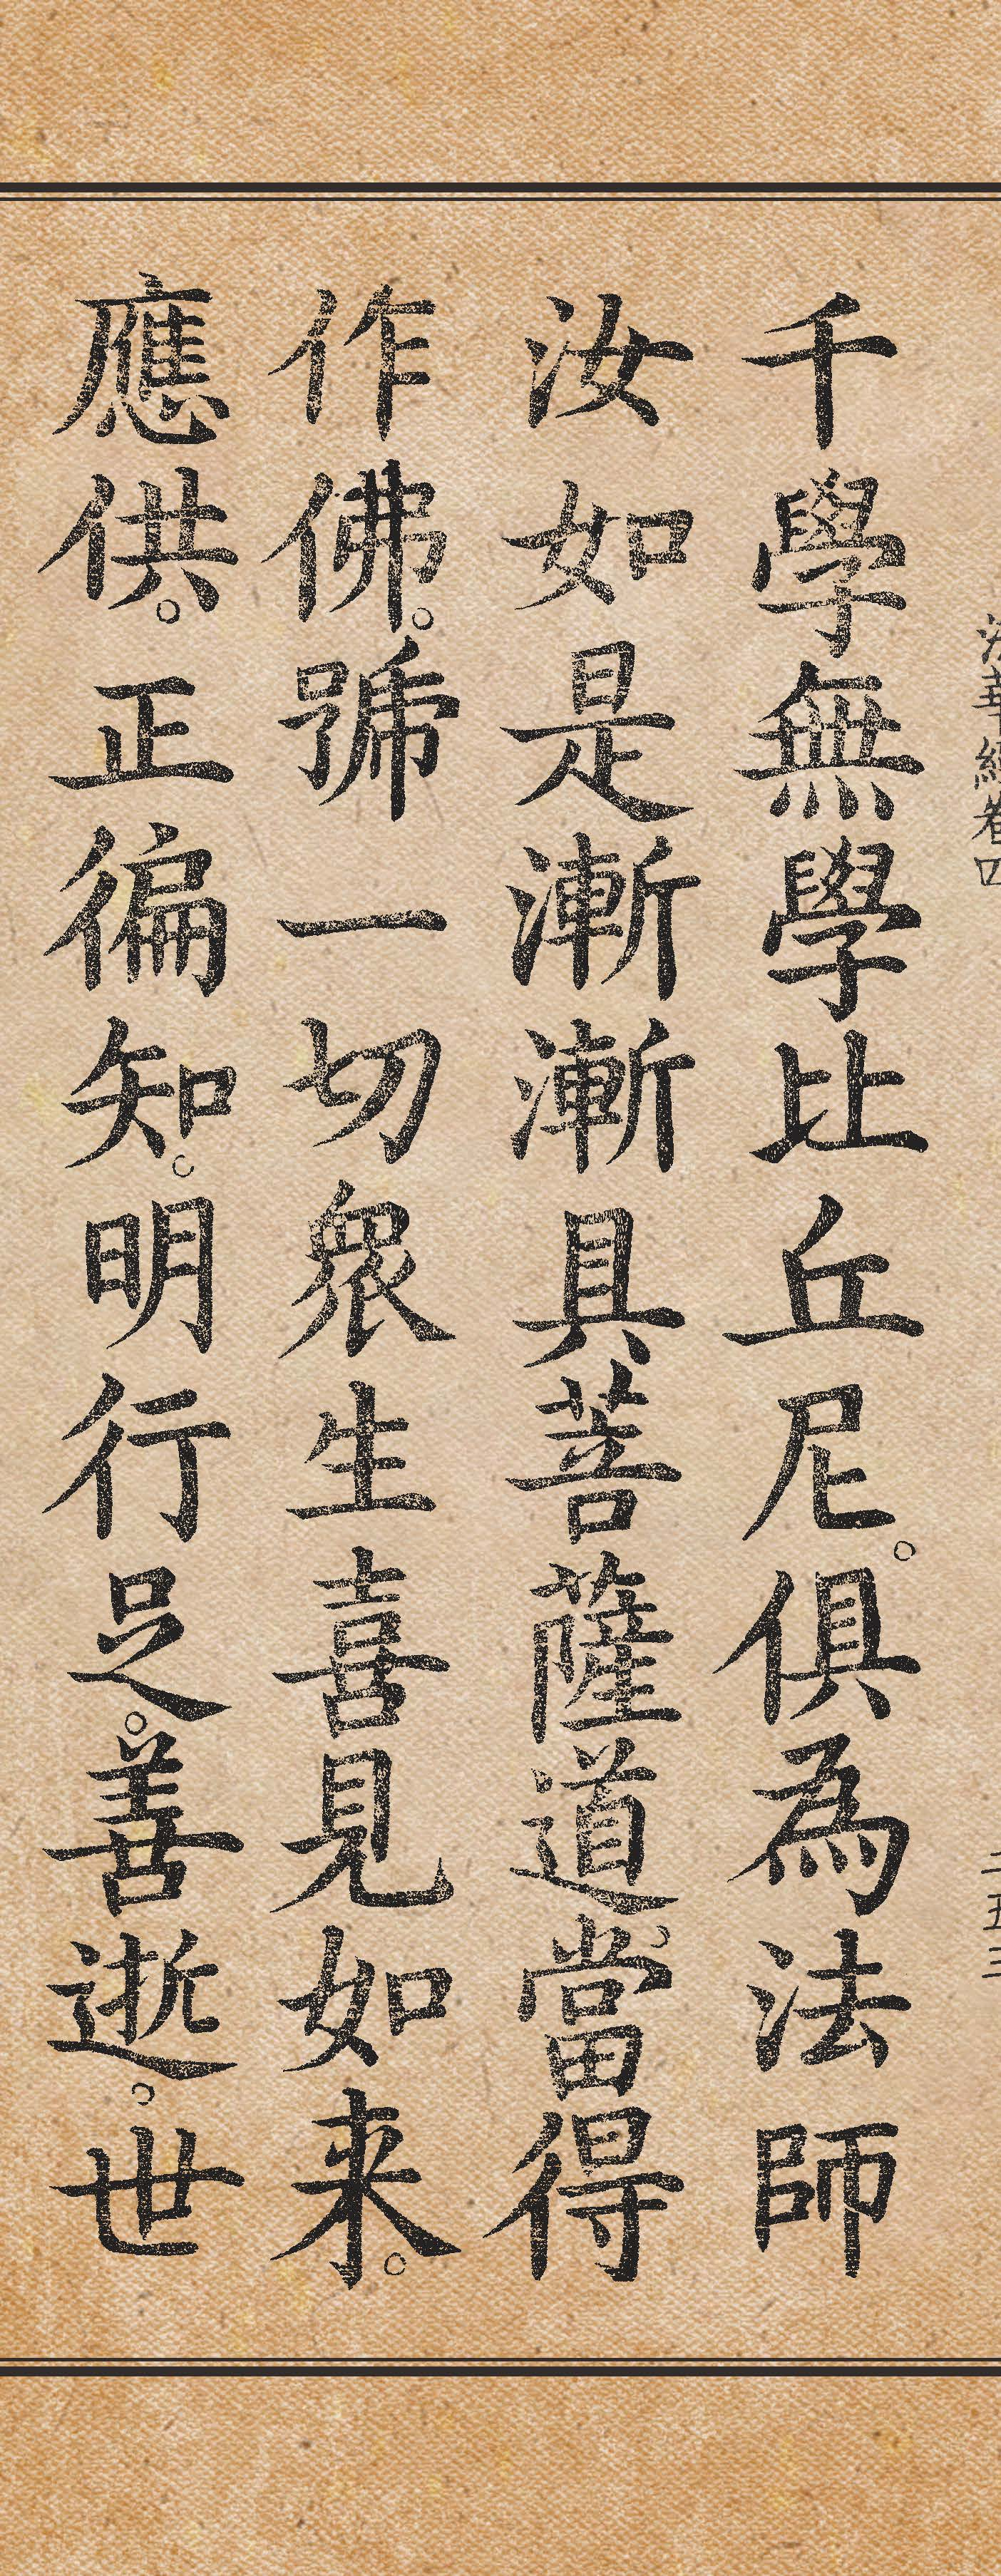 法華經卷四
二五二
千學無學比丘尼。俱為法師
汝如是漸漸具菩薩道。當得
作佛。號一切眾生喜見如来。
應供。正徧知。明行足。善逝。世